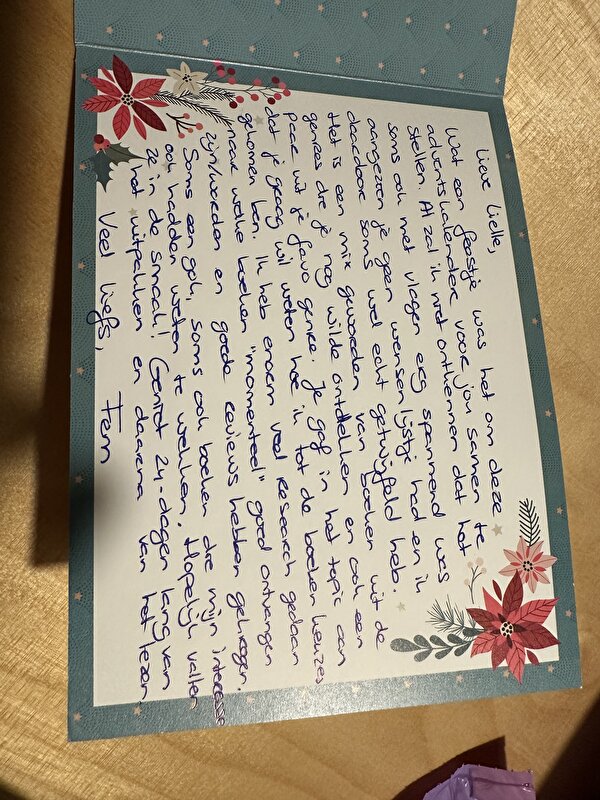 Lieve Lielle,
Wat een feestje was het om deze
adventskalender voor jou samen te
stellen. Al zal ik niet ontkennen dat het
soms ook met vlagen erg spannend was
aangezien je geen wensenlijstje had en ik
daardoor soms wel echt getwijfeld heb.
Het is een mix geworden van boeken uit de
genres die je nog wilde ontdekken en ook een
paar uit je favo genre. Je gaf in het topic aan
dat je graag wil weten hoe ik tot de boeken keuzes
gekomen ben. Ik heb enorm veel research gedaan
naar welke boeken "momenteel" goed ontvangen
zijn/worden en goede reviews hebben gekregen.
Soms een gok, soms ook boeken die mijn interesse
ook hadden weten te wekken. Hopelijk vallen
ze in de smaak! Geniet 24-dagen lang van
het uitpakken en daarna van het lezen.
Veel liefs,
Fem